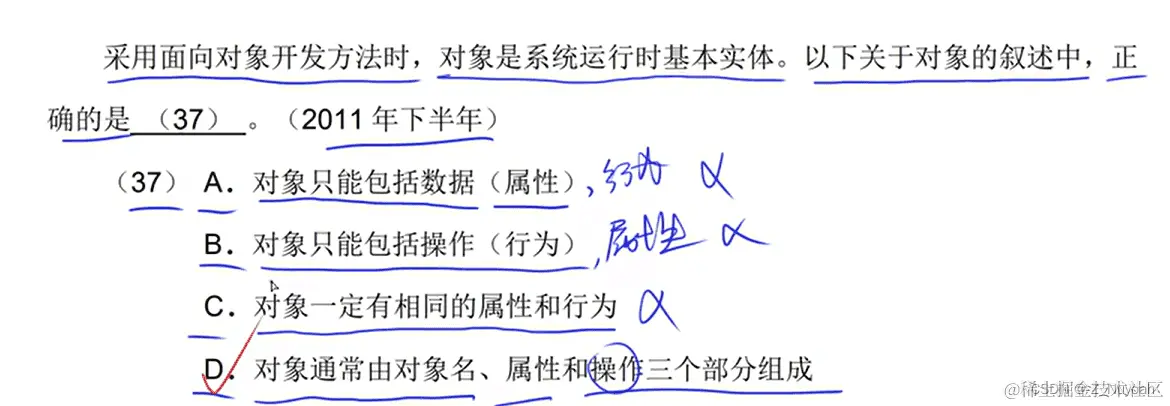 采用面向对象开发方法时，对象是系统运行时基本实体。以下关于对象的叙述中，正
确的是 （37） 。（2011 年下半年）
（37） A．对象只能包括数据（属性），行为
B．对象只能包括操作（行为），属性
C．对象一定有相同的属性和行为
D．对象通常由对象名、属性和操作三个部分组成
@稀土掘金技术社区